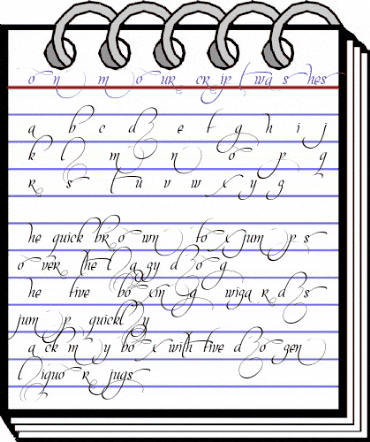 on mour cript washes
a b c d e f g h i j
k l m n o p q
r s t u v w x y z
he quick brown fox jumps
over the lazy dog
he five boxing wizards
jump quickly
ack my box with five dozen
liquor jugs